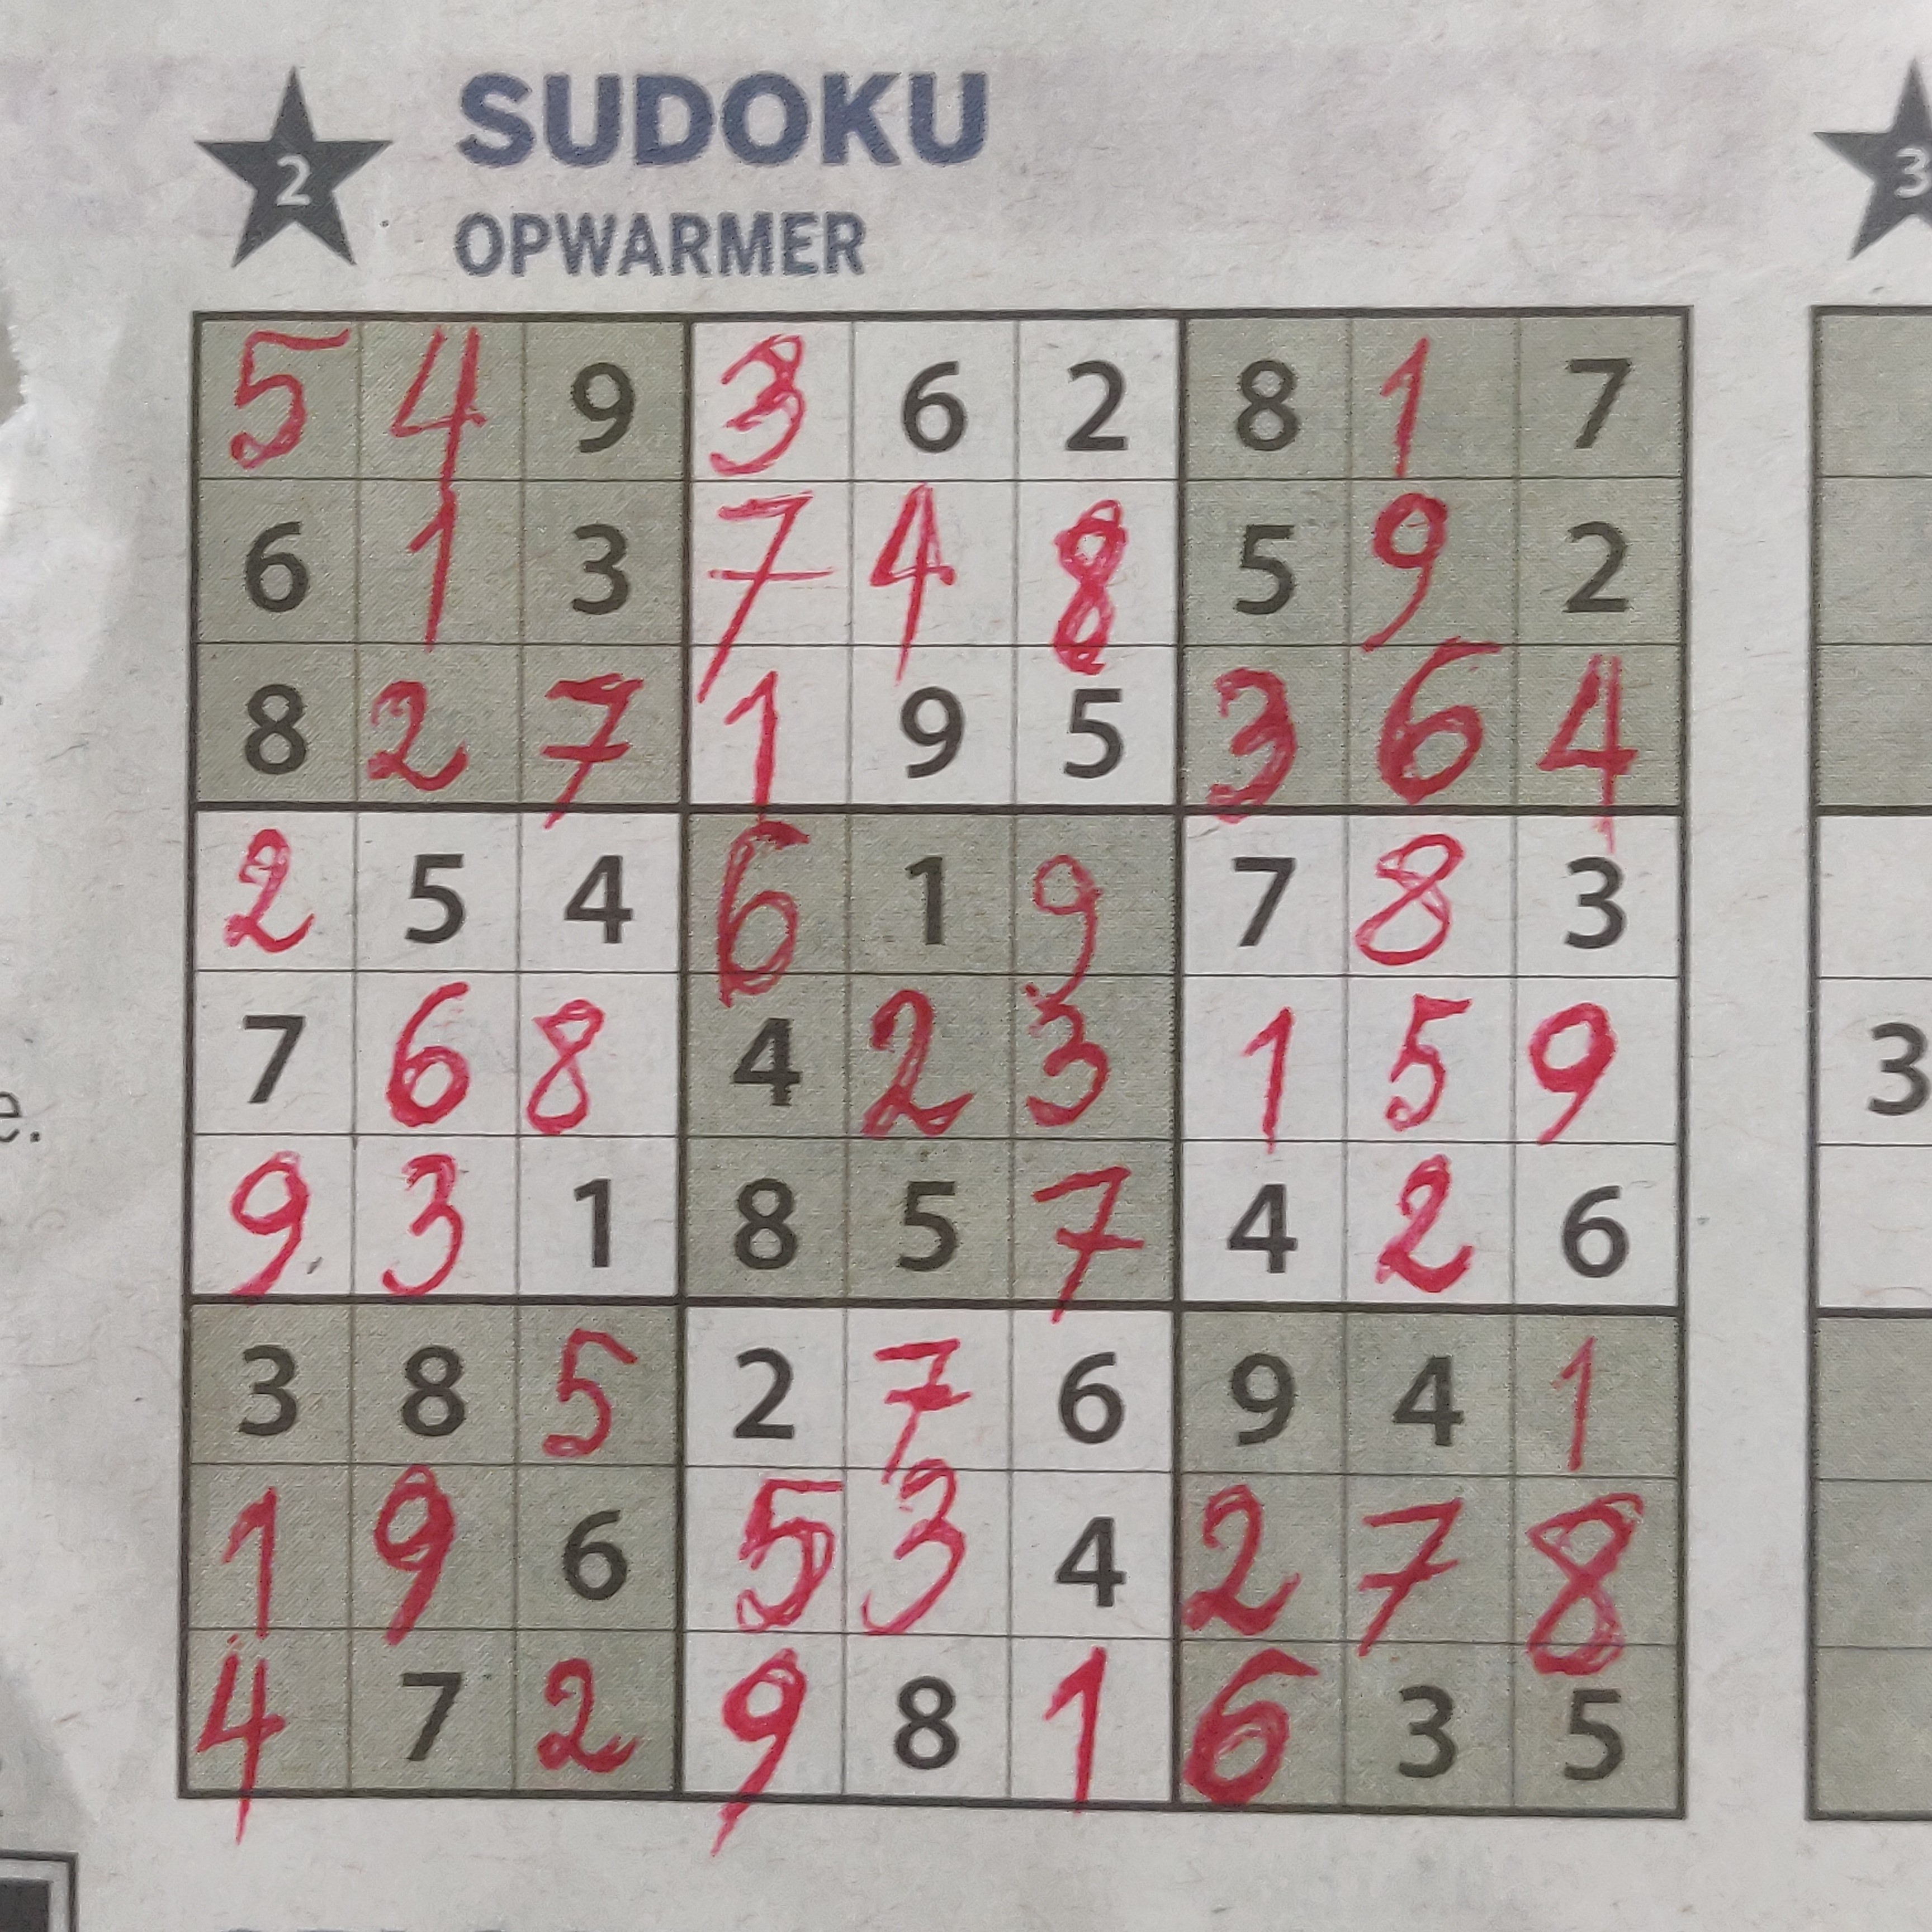 2 SUDOKU 3
OPWARMER
5 4 9 3 6 2 8 1 7
6 1 3 7 4 8 5 9 2
8 2 7 1 9 5 3 6 4
2 5 4 6 1 9 7 8 3
7 6 8 4 2 3 1 5 9 3
e.
9 3 1 8 5 7 4 2 6
3 8 5 2 7 6 9 4 1
1 9 6 5 3 4 2 7 8
4 7 2 9 8 1 6 3 5